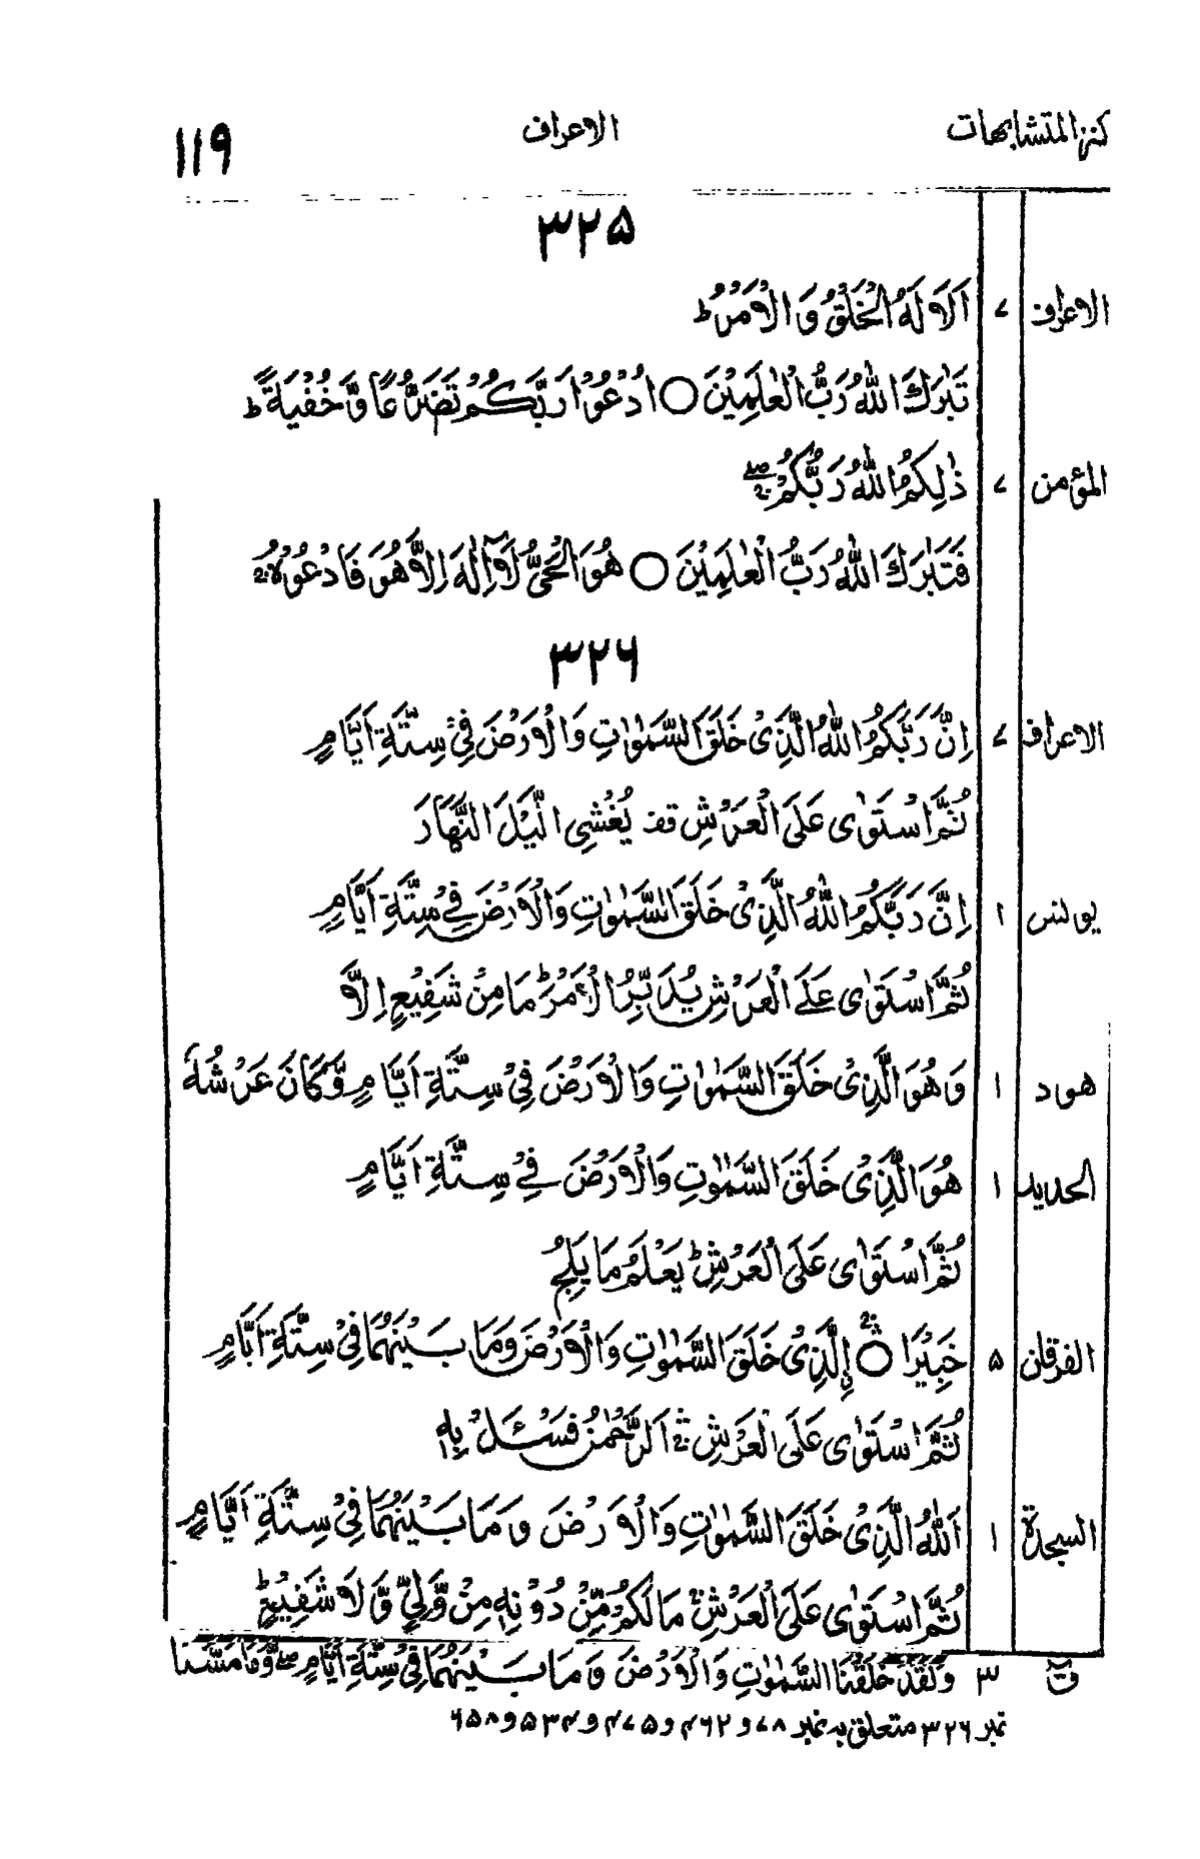 كنز المتشابهات الاعراف ۱۱۹
۳۲۵
الاعراف ۷ اَلَا لَهُ الْخَلْقُ وَالْاَمْرُ ؕ
تَبٰرَكَ اللّٰهُ رَبُّ الْعٰلَمِيْنَ ○ اُدْعُوْا رَبَّكُمْ تَضَرُّعًا وَّخُفْيَةً ؕ
المؤمن ۷ ذٰلِكُمُ اللّٰهُ رَبُّكُمْ ۖۚ
فَتَبٰرَكَ اللّٰهُ رَبُّ الْعٰلَمِيْنَ ○ هُوَ الْحَیُّ لَاۤ اِلٰهَ اِلَّا هُوَ فَادْعُوْهُ
۳۲۶
الاعراف ۷ اِنَّ رَبَّكُمُ اللّٰهُ الَّذِیْ خَلَقَ السَّمٰوٰتِ وَالْاَرْضَ فِیْ سِتَّةِ اَيَّامٍ
ثُمَّ اسْتَوٰی عَلَی الْعَرْشِ قف يُغْشِی الَّيْلَ النَّهَارَ
يونس ۱ اِنَّ رَبَّكُمُ اللّٰهُ الَّذِیْ خَلَقَ السَّمٰوٰتِ وَالْاَرْضَ فِیْ سِتَّةِ اَيَّامٍ
ثُمَّ اسْتَوٰی عَلَی الْعَرْشِ يُدَبِّرُ الْاَمْرَ ؕ مَا مِنْ شَفِيْعٍ اِلَّا
هود ۱ وَهُوَ الَّذِیْ خَلَقَ السَّمٰوٰتِ وَالْاَرْضَ فِیْ سِتَّةِ اَيَّامٍ وَّكَانَ عَرْشُهٗ
الحديد ۱ هُوَ الَّذِیْ خَلَقَ السَّمٰوٰتِ وَالْاَرْضَ فِیْ سِتَّةِ اَيَّامٍ
ثُمَّ اسْتَوٰی عَلَی الْعَرْشِ ؕ يَعْلَمُ مَا يَلِجُ
الفرقان ۵ خَبِيْرًا ○ اِۨلَّذِیْ خَلَقَ السَّمٰوٰتِ وَالْاَرْضَ وَمَا بَيْنَهُمَا فِیْ سِتَّةِ اَيَّامٍ
ثُمَّ اسْتَوٰی عَلَی الْعَرْشِ ۚۛ اَلرَّحْمٰنُ فَسْئَلْ بِهٖ
السجدة ۱ اَللّٰهُ الَّذِیْ خَلَقَ السَّمٰوٰتِ وَالْاَرْضَ وَمَا بَيْنَهُمَا فِیْ سِتَّةِ اَيَّامٍ
ثُمَّ اسْتَوٰی عَلَی الْعَرْشِ ؕ مَا لَكُمْ مِّنْ دُوْنِهٖ مِنْ وَّلِیٍّ وَّلَا شَفِيْعٍ ؕ
قٓ ۳ وَلَقَدْ خَلَقْنَا السَّمٰوٰتِ وَالْاَرْضَ وَمَا بَيْنَهُمَا فِیْ سِتَّةِ اَيَّامٍ ۖ وَّمَا مَسَّنَا
نمبر ۳۲۶ متعلق بہ نمبر ۷۸ و ۴۶۲ و ۴۷۵ و ۵۳۴ و ۶۵۸